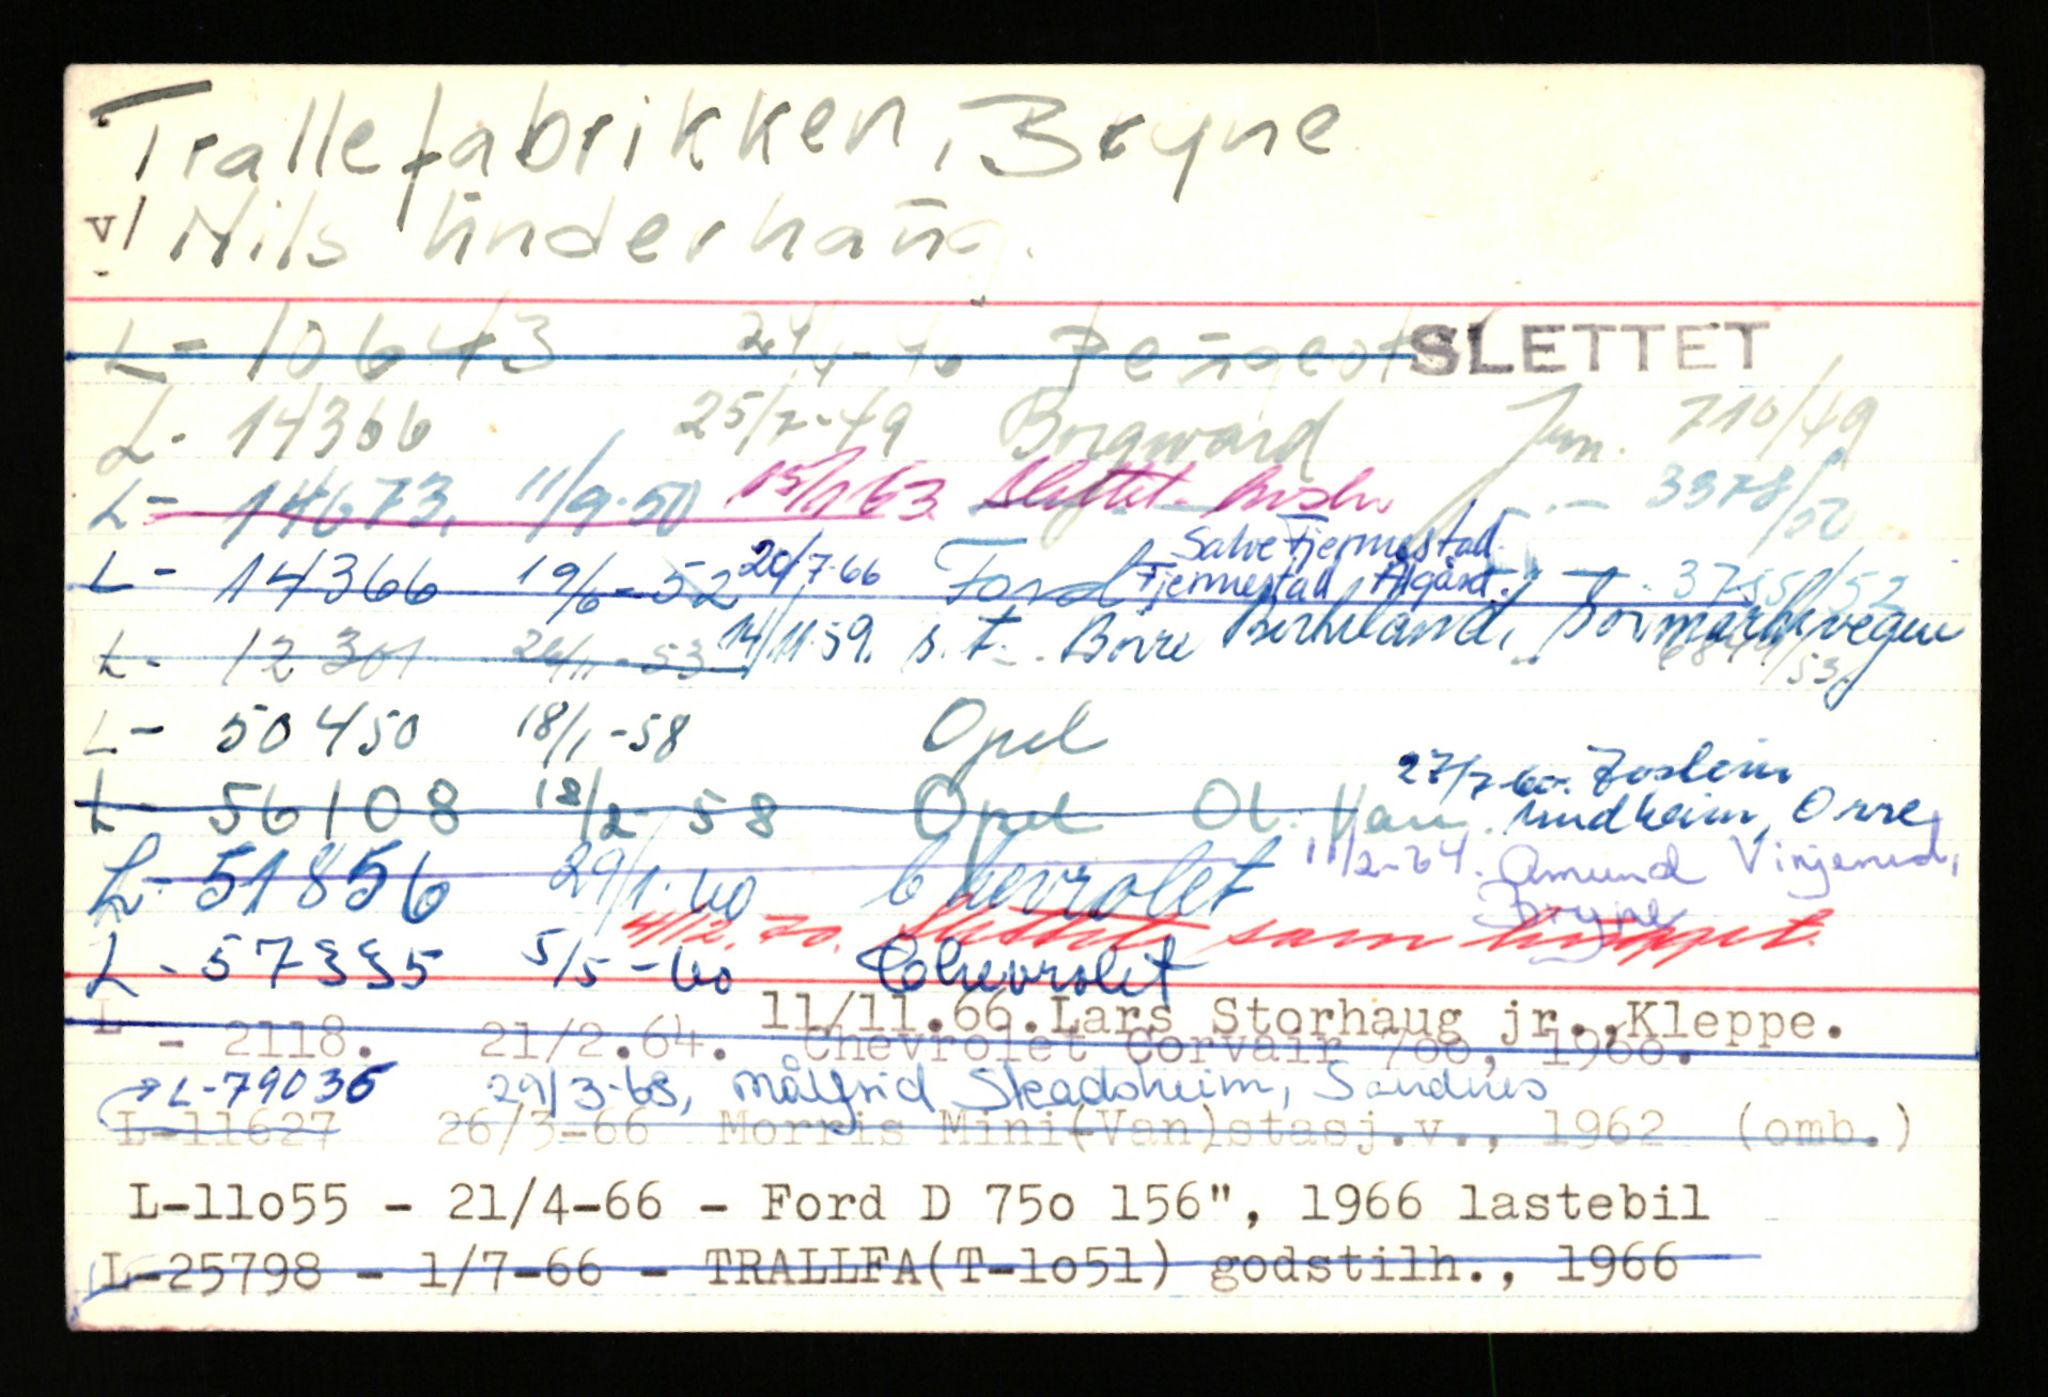 Trallefabrikken, Bryne
v/ Nils Underhaug.
L- 10643 24/4-46 Peugeot SLETTET
L- 14366 25/7-49 Borgward Jnr. 710/49
L- 14673, 11/9-50 15/1 63 Slettet 3378/50
L- 14366 19/6-52 20/7-66 Ford Salve Fjermestad
Fjermestad Ålgård. 3755/52
L- 12301 24/11-53 14/11-59. s.t. Börre Birkeland,
L- 50450 18/1-58 Opel
27/7-60. Jostein
L- 56108 18/2 58 Opel Ol. Van. Undheim, Orre
L- 51856 29/1-60 Chevrolet 11/2-64. Amund
Bryne
4/12. 70. Slettet som hugget.
L- 57335 5/5-60 Chevrolet
11/11.66.Lars Storhaug jr.,Kleppe.
L - 2118. 21/2.64. Chevrolet Corvair 700, 1960.
→ L-79036 29/3-68, Målfrid Skadsheim, Sandnes
L-11627 26/3-66 Morris Mini(Van)stasj.v., 1962 (omb.)
L-11o55 - 21/4-66 - Ford D 75o 156", 1966 lastebil
L-25798 - 1/7-66 - TRALLFA(T-1o51) godstilh., 1966